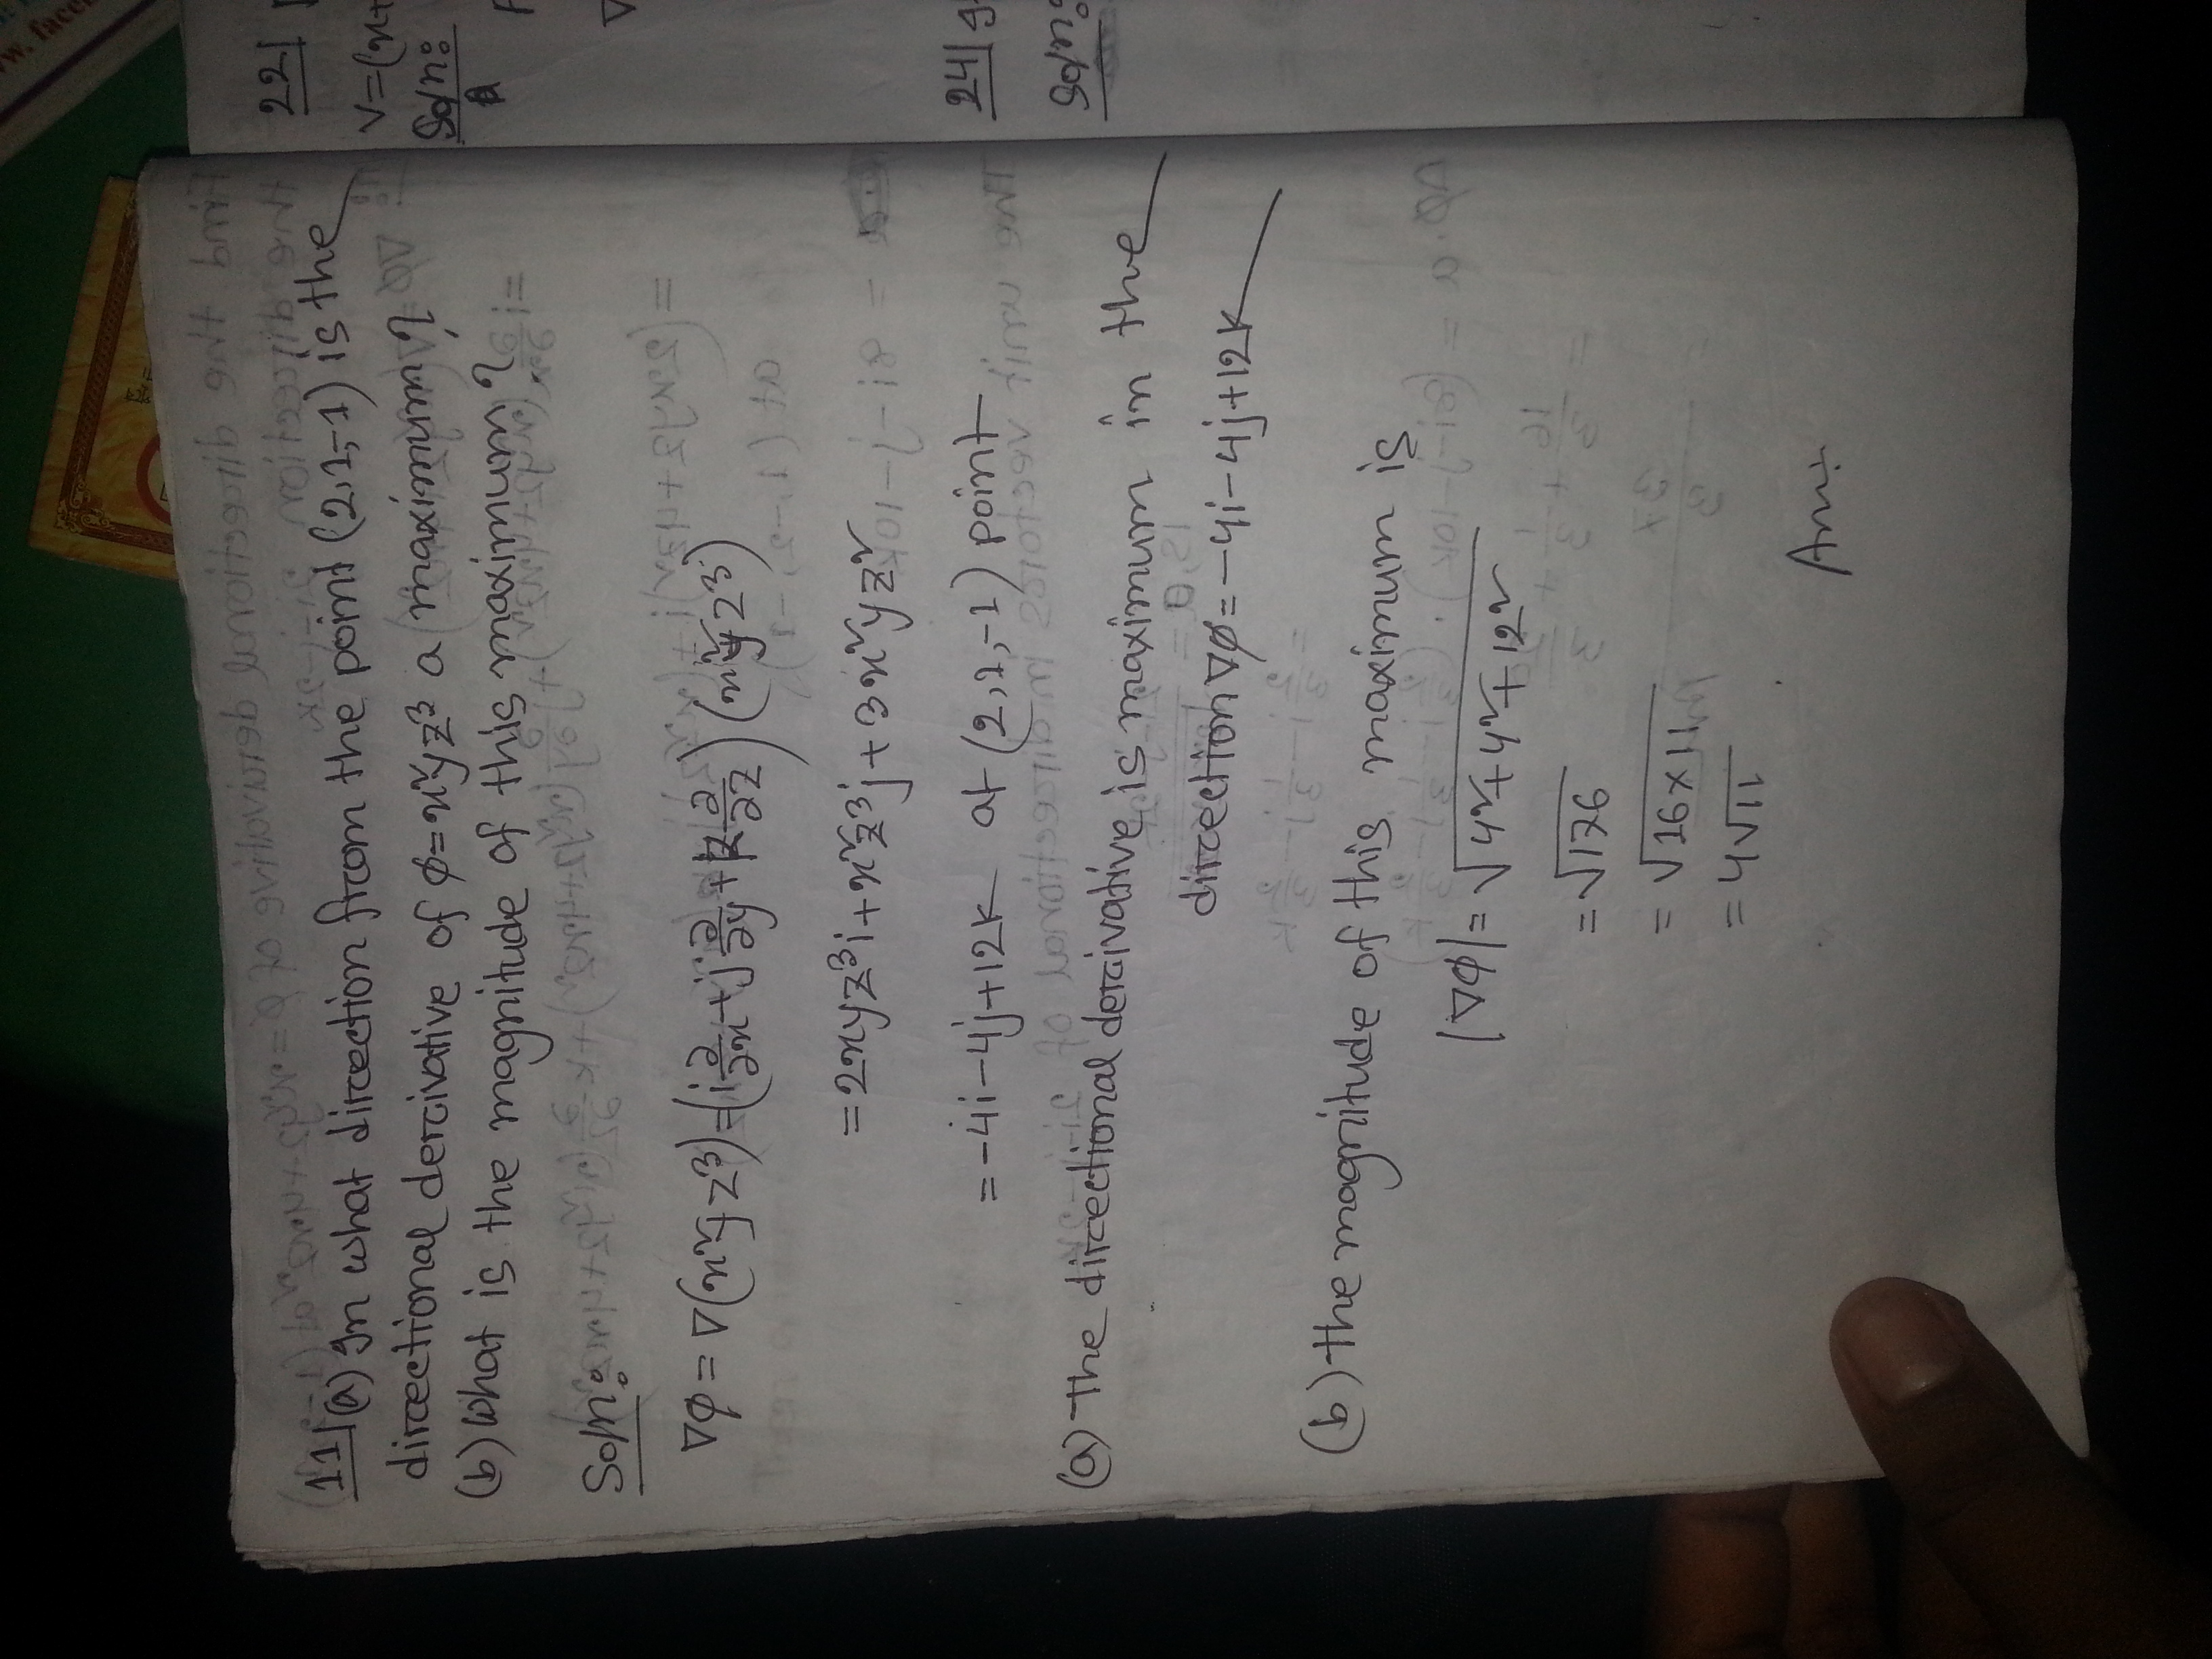 11| (a) In what direction from the point (2,1,-1) is the
directional derivative of φ=x²yz³ a maximum?
(b) What is the magnitude of this maximum?
Soln:
∇φ = ∇(x²yz³) = (i ∂/∂x + j ∂/∂y + k ∂/∂z) (x²yz³)
= 2xyz³i + x²z³j + 3x²yz²
= -4i - 4j + 12k at (2,1,-1) point
(a) The directional derivative is maximum in the
direction ∇φ = -4i - 4j + 12k
(b) the magnitude of this maximum is
|∇φ| = √4² + 4² + 12²
= √176
= √16×11
= 4√11
Ans:
22|
V=(x+
Soln:
24|
Soln: